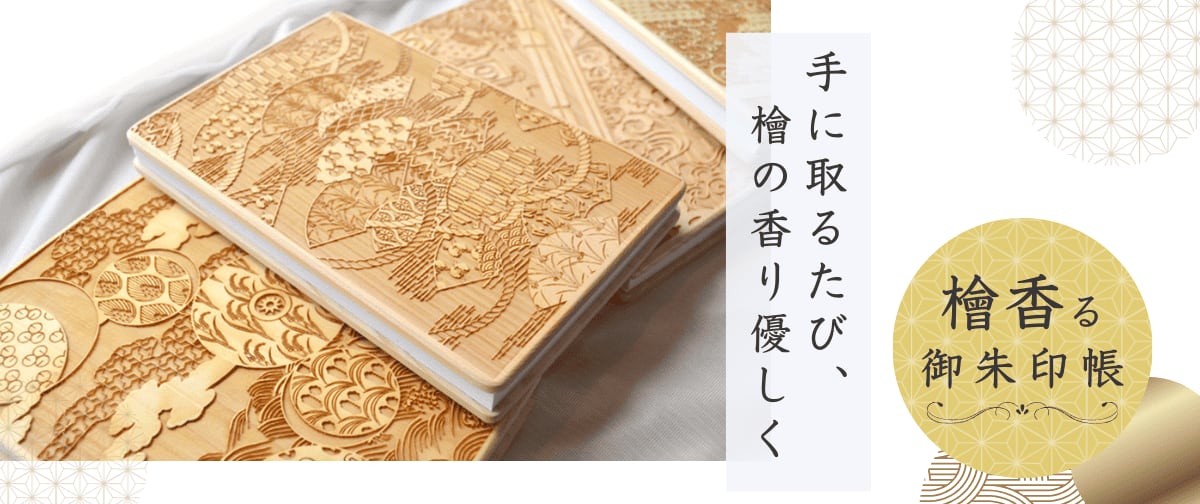 手に取るたび、
檜の香り優しく
檜香る
御朱印帳